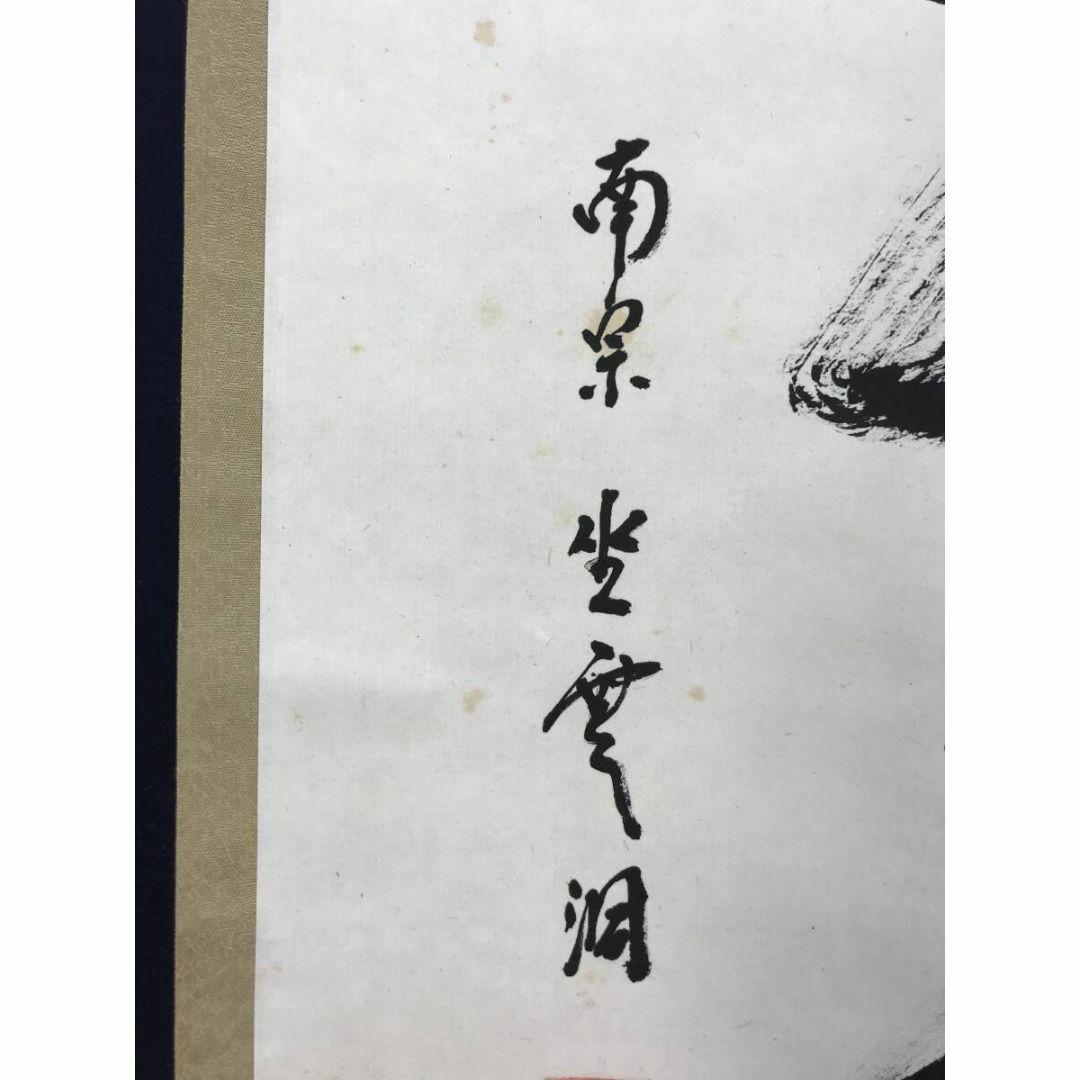 南宗 坐雲洞